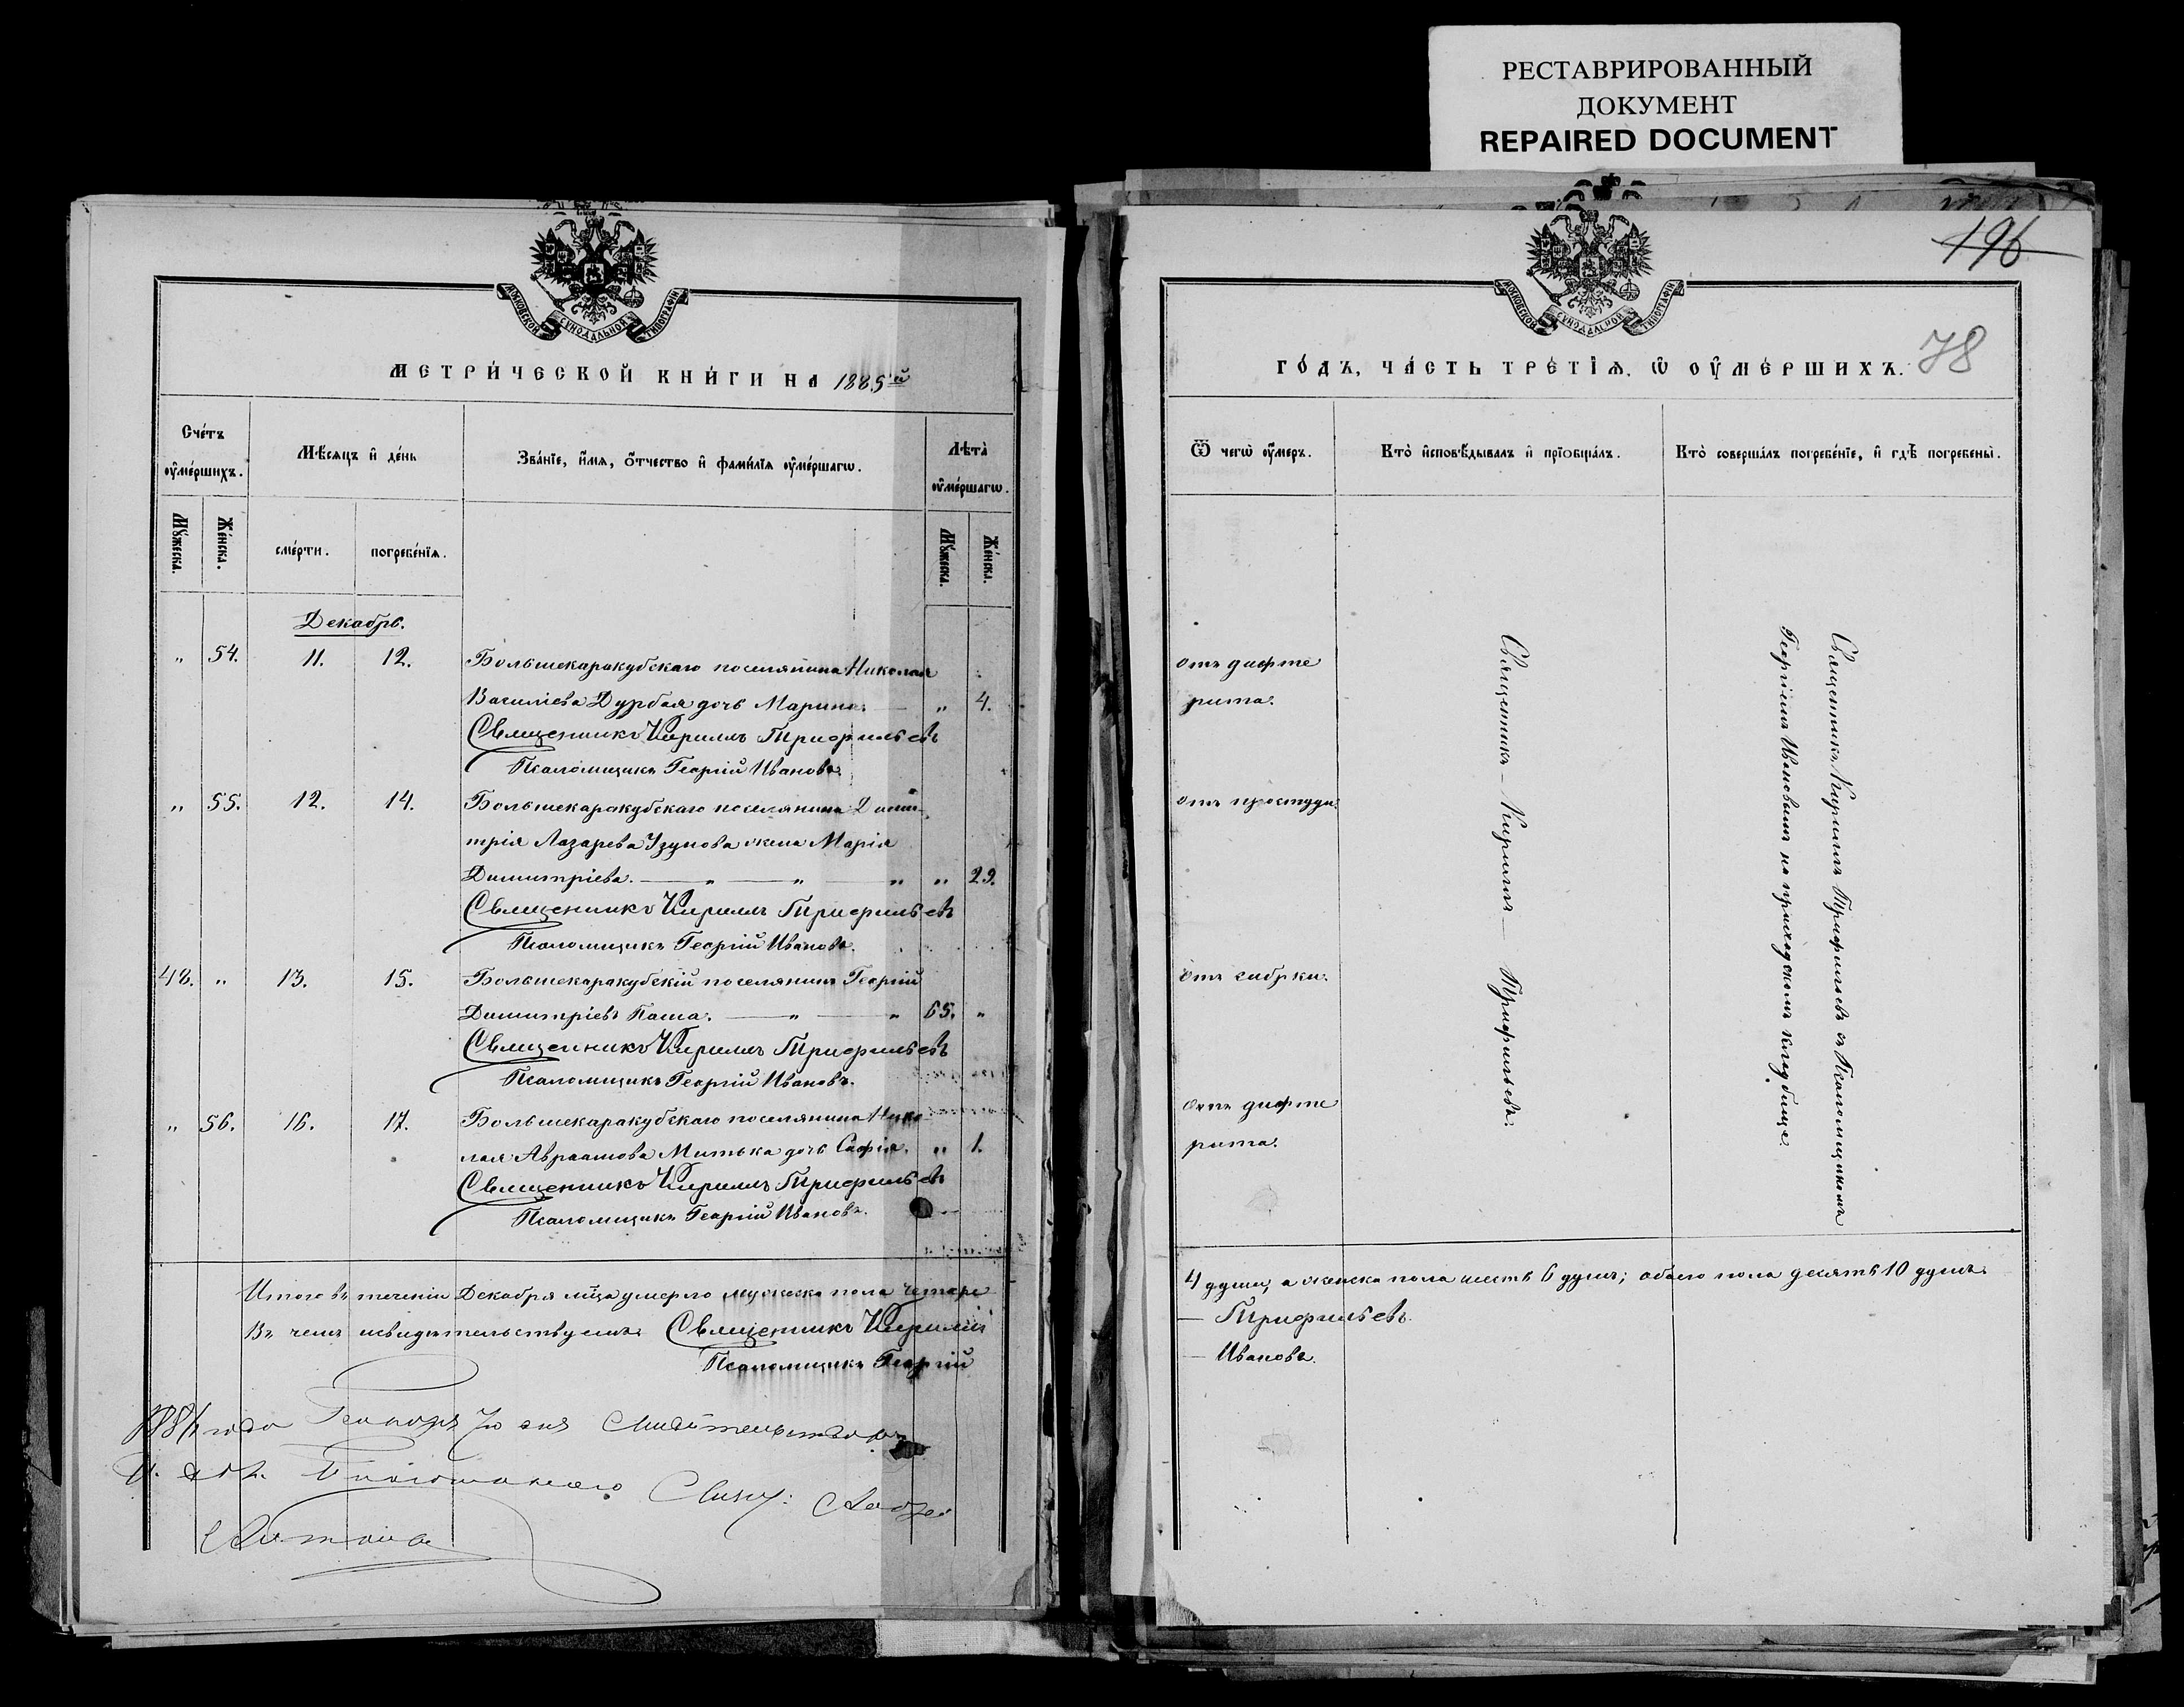 РЕСТАВРИРОВАННЫЙ
ДОКУМЕНТ
REPAIRED DOCUMENT
МОСКОВСКОЙ СѴНОДАЛЬНОЙ ТИПОГРАФІИ
МЕТРИ́ЧЕСКОЙ КНИ́ГИ НА 1885й
Сче́тъ оу҆ме́ршихъ.
Мѣ́сяцъ и҆ де́нь
Зва́нїе, и҆́мя, ѻ҆́тчество и҆ фами́лїя оу҆ме́ршагѡ.
Лѣта̀ оу҆ме́ршагѡ.
Мꙋ́жеска.
Же́нска.
сме́рти.
погребе́нїя.
Мꙋ́жеска.
Же́нска.
Декабрь.
„ 54. 11. 12. Большекаракубскаго поселянина Николая
Василіева Дурбая дочь Марина. — „ 4.
Священникъ Кириллъ Трифильевъ
Псаломщикъ Георгій Ивановъ.
„ 55. 12. 14. Большекаракубскаго поселянина Дими-
трія Лазарева Узунова жена Марія
Димитріева. — „ — „ — „ „ 29.
Священникъ Кириллъ Трифильевъ
Псаломщикъ Георгій Ивановъ.
48. „ 13. 15. Большекаракубскій поселянинъ Георгій
Димитріевъ Паша. — „ — „ 65. „
Священникъ Кириллъ Трифильевъ
Псаломщикъ Георгій Ивановъ.
„ 56. 16. 17. Большекаракубскаго поселянина Нико-
лая Авраамова Митька дочь Софія. „ 1.
Священникъ Кириллъ Трифильевъ
Псаломщикъ Георгій Ивановъ.
Итого въ теченіи Декабря мца умерло мужеска пола четыре
Въ чемъ и свидѣтельствуемъ: Священникъ Кириллъ
Псаломщикъ Георгій
года
196
МОСКОВСКОЙ СѴНОДАЛЬНОЙ ТИПОГРАФІИ
ГО́ДЪ, ЧА́СТЬ ТРЕ́ТЇѦ, Ѡ҆ ОУ҆МЕ́РШИХЪ. 78
Ѿ чегѡ̀ оу҆́меръ.
Кто̀ и҆сповѣ́дывалъ и҆ прїѻбща́лъ.
Кто̀ соверша́лъ погребе́нїе, и҆ гдѣ̀ погребены̀.
отъ дифте
рита.
отъ простуды.
отъ сибрки.
отъ дифте
рита.
Священникъ — Кириллъ — Трифильевъ.
Священникъ Кириллъ Трифильевъ съ Псаломщикомъ
Георгіемъ Ивановымъ на приходскомъ кладбище.
4 души; а женска пола шесть 6 душъ; обоего пола десять 10 душъ.
— Трифильевъ.
— Ивановъ.